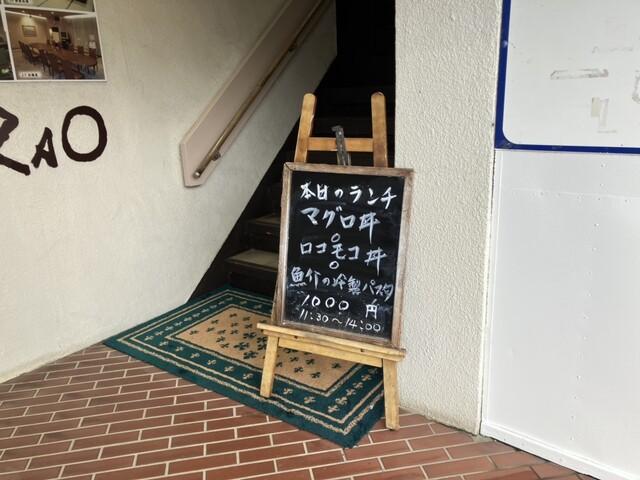 RAO
本日のランチ
マグロ丼
○
ロコモコ丼
○
魚介の冷製パスタ
1000円
11:30〜14:00